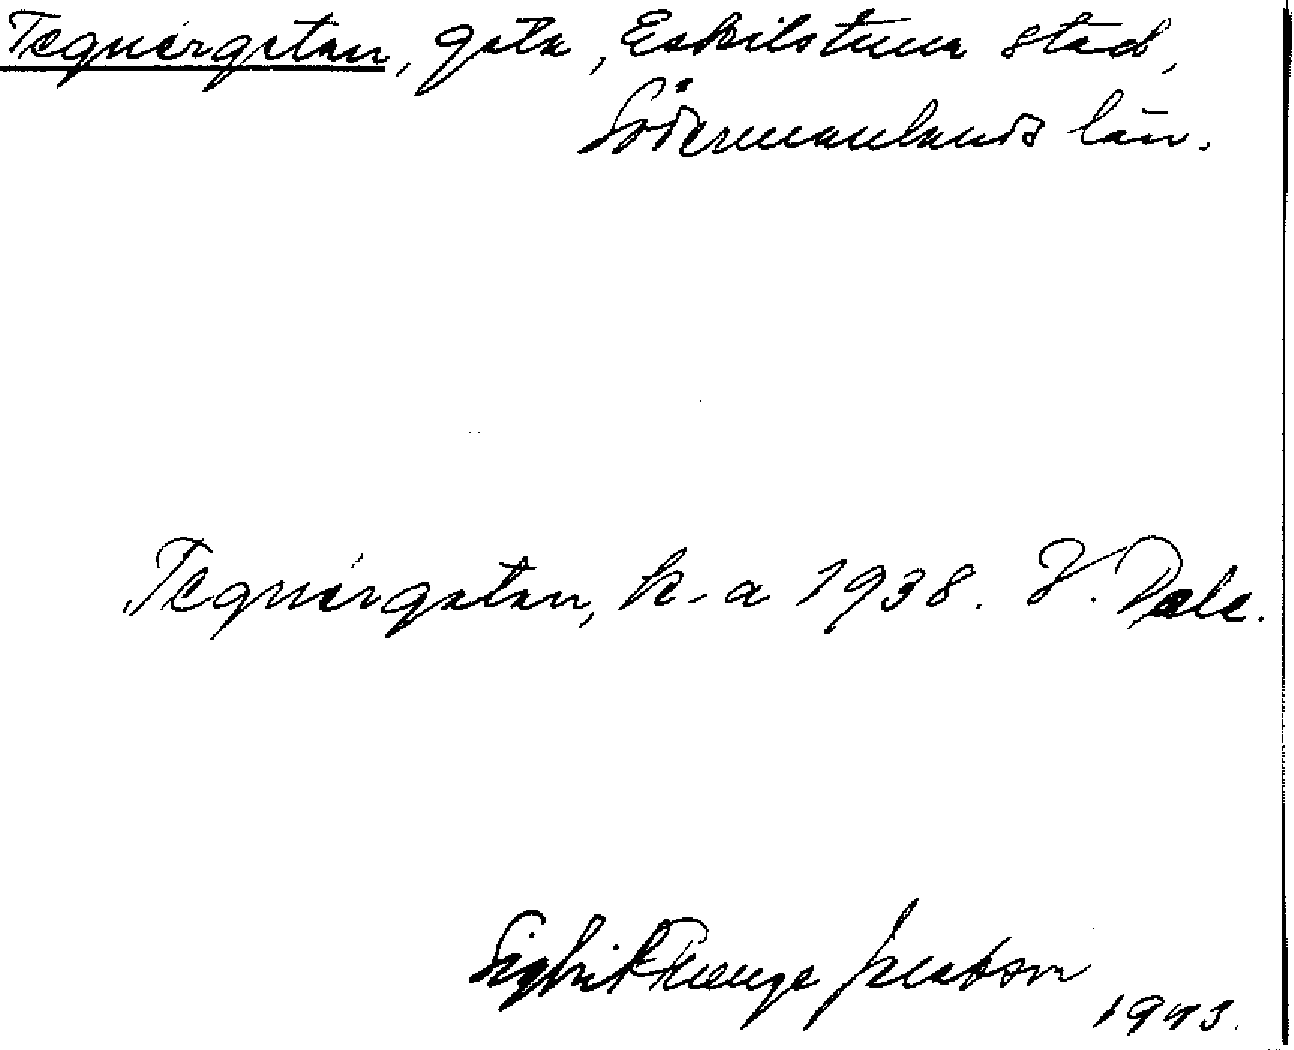 Tegnérgatan, gata, Eskilstuna stad,
Södermanlands län.
Tegnérgatan, k-a 1938. V. Dale.
1943.